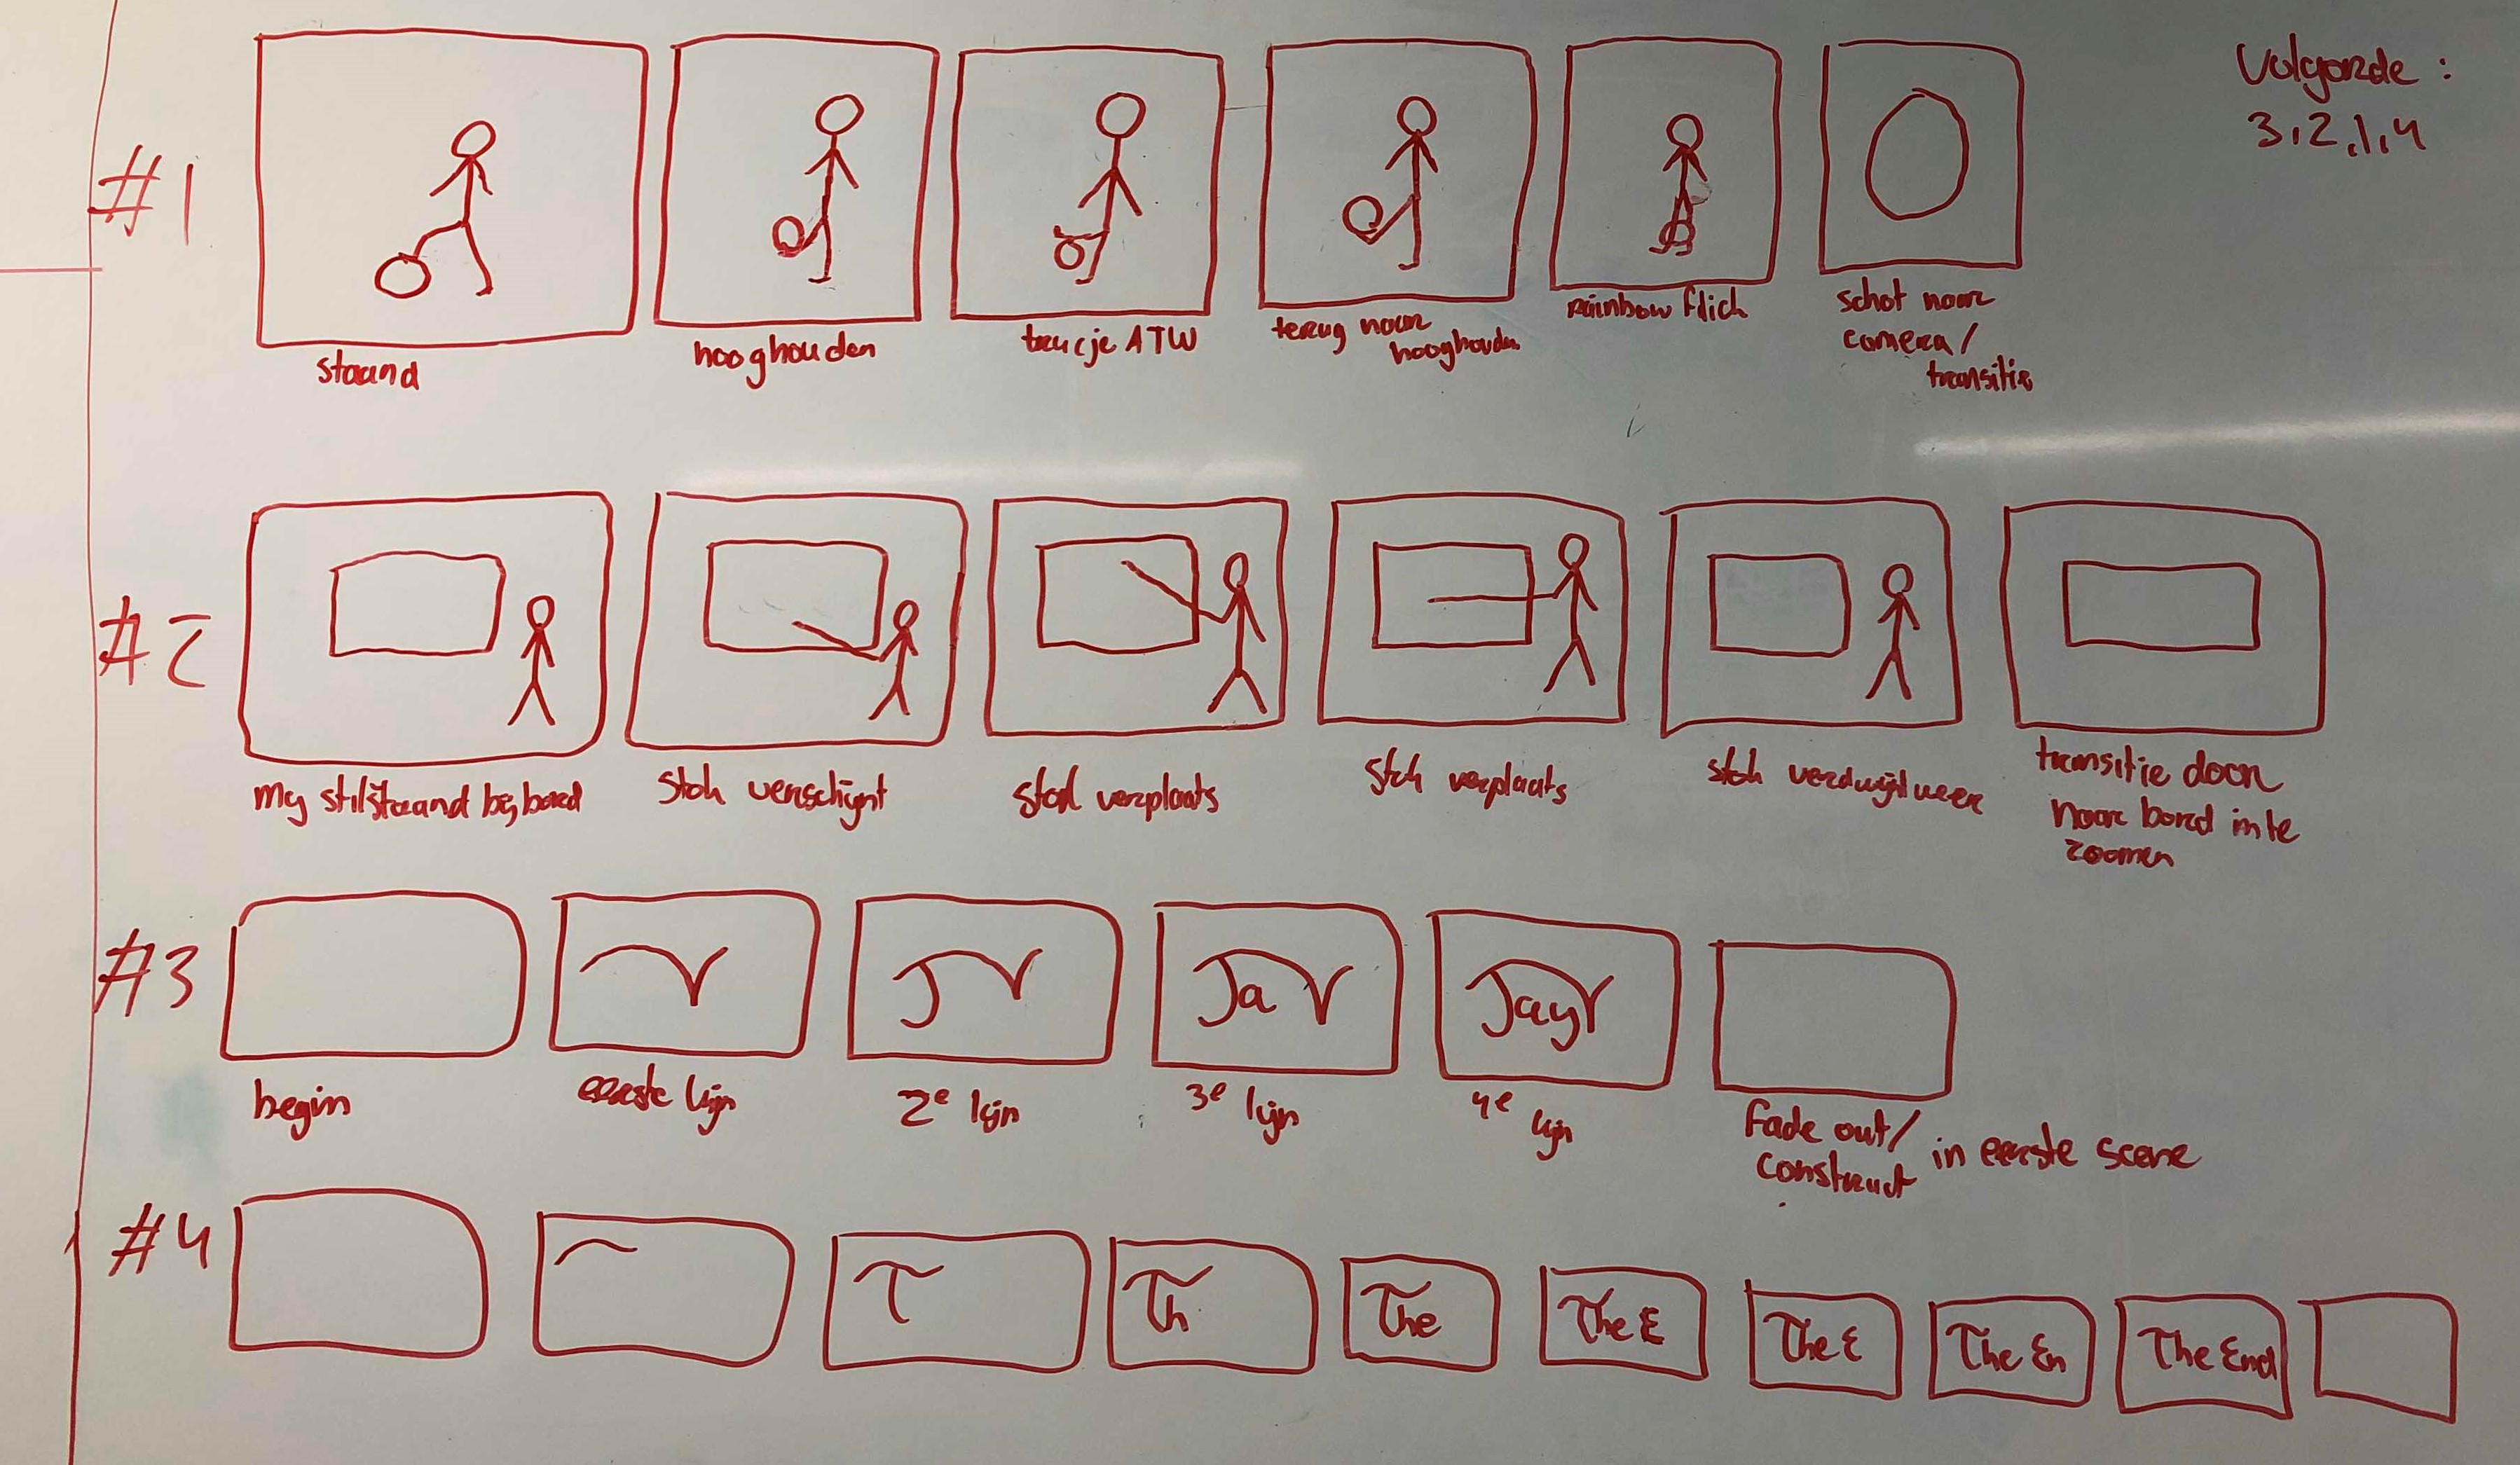 Volgorde :
3,2,1,4
#1
staand
hooghouden
trucje ATW
terug naar
hooghouden
rainbow flick
schot naar
camera/
transitie
#2
my stilstaand bij bord
stok verschijnt
stok verplaats
stok verplaats
stok verdwijnt weer
transitie door
naar bord in te
zoomen
#3
J
Ja
Jay
begin
eerste lijn
2e lijn
3e lijn
4e lijn
Fade out/ in eerste scene
construct
#4
T
Th
The
The E
The E
The En
The End